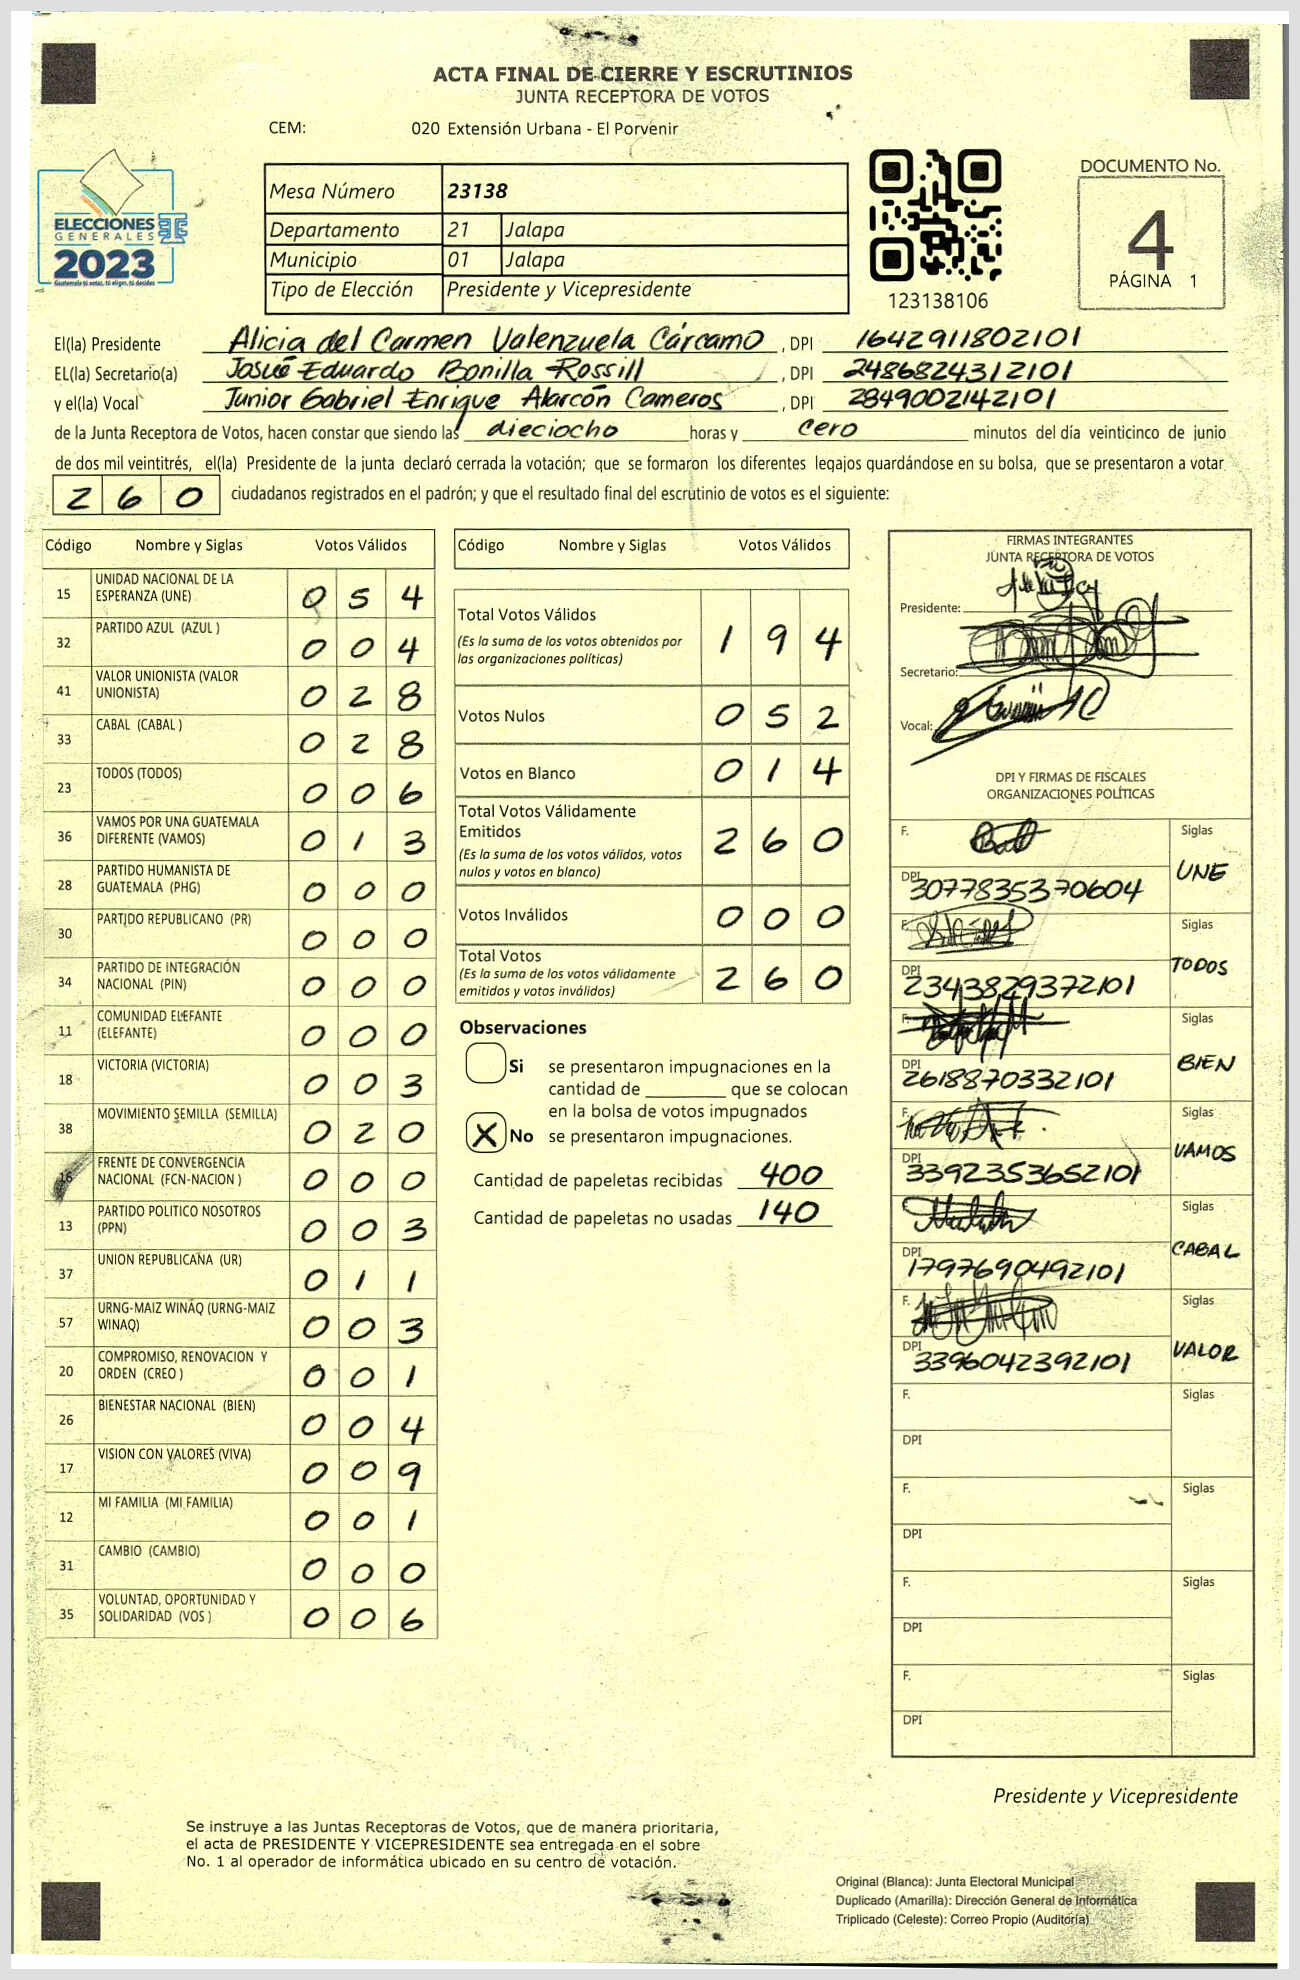 ACTA FINAL DE CIERRE Y ESCRUTINIOS
JUNTA RECEPTORA DE VOTOS
CEM: 020 Extensión Urbana - El Porvenir
ELECCIONES
GENERALES
2023
Guatemala tú votas, tú eliges, tú decides
Mesa Número 23138
Departamento 21 Jalapa
Municipio 01 Jalapa
Tipo de Elección Presidente y Vicepresidente
123138106
DOCUMENTO No.
4
PÁGINA 1
El(la) Presidente Alicia del Carmen Valenzuela Cárcamo , DPI 1642911802101
EL(la) Secretario(a) Josué Eduardo Bonilla Rossill , DPI 2486824312101
y el(la) Vocal Junior Gabriel Enrique Alarcón Cameros , DPI 2849002142101
de la Junta Receptora de Votos, hacen constar que siendo las dieciocho horas y cero minutos del día veinticinco de junio
de dos mil veintitrés, el(la) Presidente de la junta declaró cerrada la votación; que se formaron los diferentes legajos guardándose en su bolsa, que se presentaron a votar
260 ciudadanos registrados en el padrón; y que el resultado final del escrutinio de votos es el siguiente:
Código Nombre y Siglas Votos Válidos
15 UNIDAD NACIONAL DE LA ESPERANZA (UNE) 0 5 4
32 PARTIDO AZUL (AZUL ) 0 0 4
41 VALOR UNIONISTA (VALOR UNIONISTA) 0 2 8
33 CABAL (CABAL ) 0 2 8
23 TODOS (TODOS) 0 0 6
36 VAMOS POR UNA GUATEMALA DIFERENTE (VAMOS) 0 1 3
28 PARTIDO HUMANISTA DE GUATEMALA (PHG) 0 0 0
30 PARTIDO REPUBLICANO (PR) 0 0 0
34 PARTIDO DE INTEGRACIÓN NACIONAL (PIN) 0 0 0
11 COMUNIDAD ELEFANTE (ELEFANTE) 0 0 0
18 VICTORIA (VICTORIA) 0 0 3
38 MOVIMIENTO SEMILLA (SEMILLA) 0 2 0
16 FRENTE DE CONVERGENCIA NACIONAL (FCN-NACION ) 0 0 0
13 PARTIDO POLITICO NOSOTROS (PPN) 0 0 3
37 UNION REPUBLICANA (UR) 0 1 1
57 URNG-MAIZ WINAQ (URNG-MAIZ WINAQ) 0 0 3
20 COMPROMISO, RENOVACION Y ORDEN (CREO ) 0 0 1
26 BIENESTAR NACIONAL (BIEN) 0 0 4
17 VISION CON VALORES (VIVA) 0 0 9
12 MI FAMILIA (MI FAMILIA) 0 0 1
31 CAMBIO (CAMBIO) 0 0 0
35 VOLUNTAD, OPORTUNIDAD Y SOLIDARIDAD (VOS ) 0 0 6
Código Nombre y Siglas Votos Válidos
Total Votos Válidos 1 9 4
(Es la suma de los votos obtenidos por
las organizaciones políticas)
Votos Nulos 0 5 2
Votos en Blanco 0 1 4
Total Votos Válidamente
Emitidos 2 6 0
(Es la suma de los votos válidos, votos
nulos y votos en blanco)
Votos Inválidos 0 0 0
Total Votos 2 6 0
(Es la suma de los votos válidamente
emitidos y votos inválidos)
Observaciones
Si se presentaron impugnaciones en la
cantidad de ________ que se colocan
en la bolsa de votos impugnados
X No se presentaron impugnaciones.
Cantidad de papeletas recibidas 400
Cantidad de papeletas no usadas 140
FIRMAS INTEGRANTES
JUNTA RECEPTORA DE VOTOS
Presidente:
Secretario:
Vocal:
DPI Y FIRMAS DE FISCALES
ORGANIZACIONES POLÍTICAS
F. Siglas
DPI 3077835370604 UNE
F. Siglas
DPI 2343829372101 TODOS
F. Siglas
DPI 2618870332101 BIEN
F. Siglas
DPI 3392353652101 VAMOS
F. Siglas
DPI 1797690492101 CABAL
F. Siglas
DPI 3396042392101 VALOR
F. Siglas
DPI
F. Siglas
DPI
F. Siglas
DPI
F. Siglas
DPI
Presidente y Vicepresidente
Se instruye a las Juntas Receptoras de Votos, que de manera prioritaria,
el acta de PRESIDENTE Y VICEPRESIDENTE sea entregada en el sobre
No. 1 al operador de informática ubicado en su centro de votación.
Original (Blanca): Junta Electoral Municipal
Duplicado (Amarilla): Dirección General de Informática
Triplicado (Celeste): Correo Propio (Auditoría)